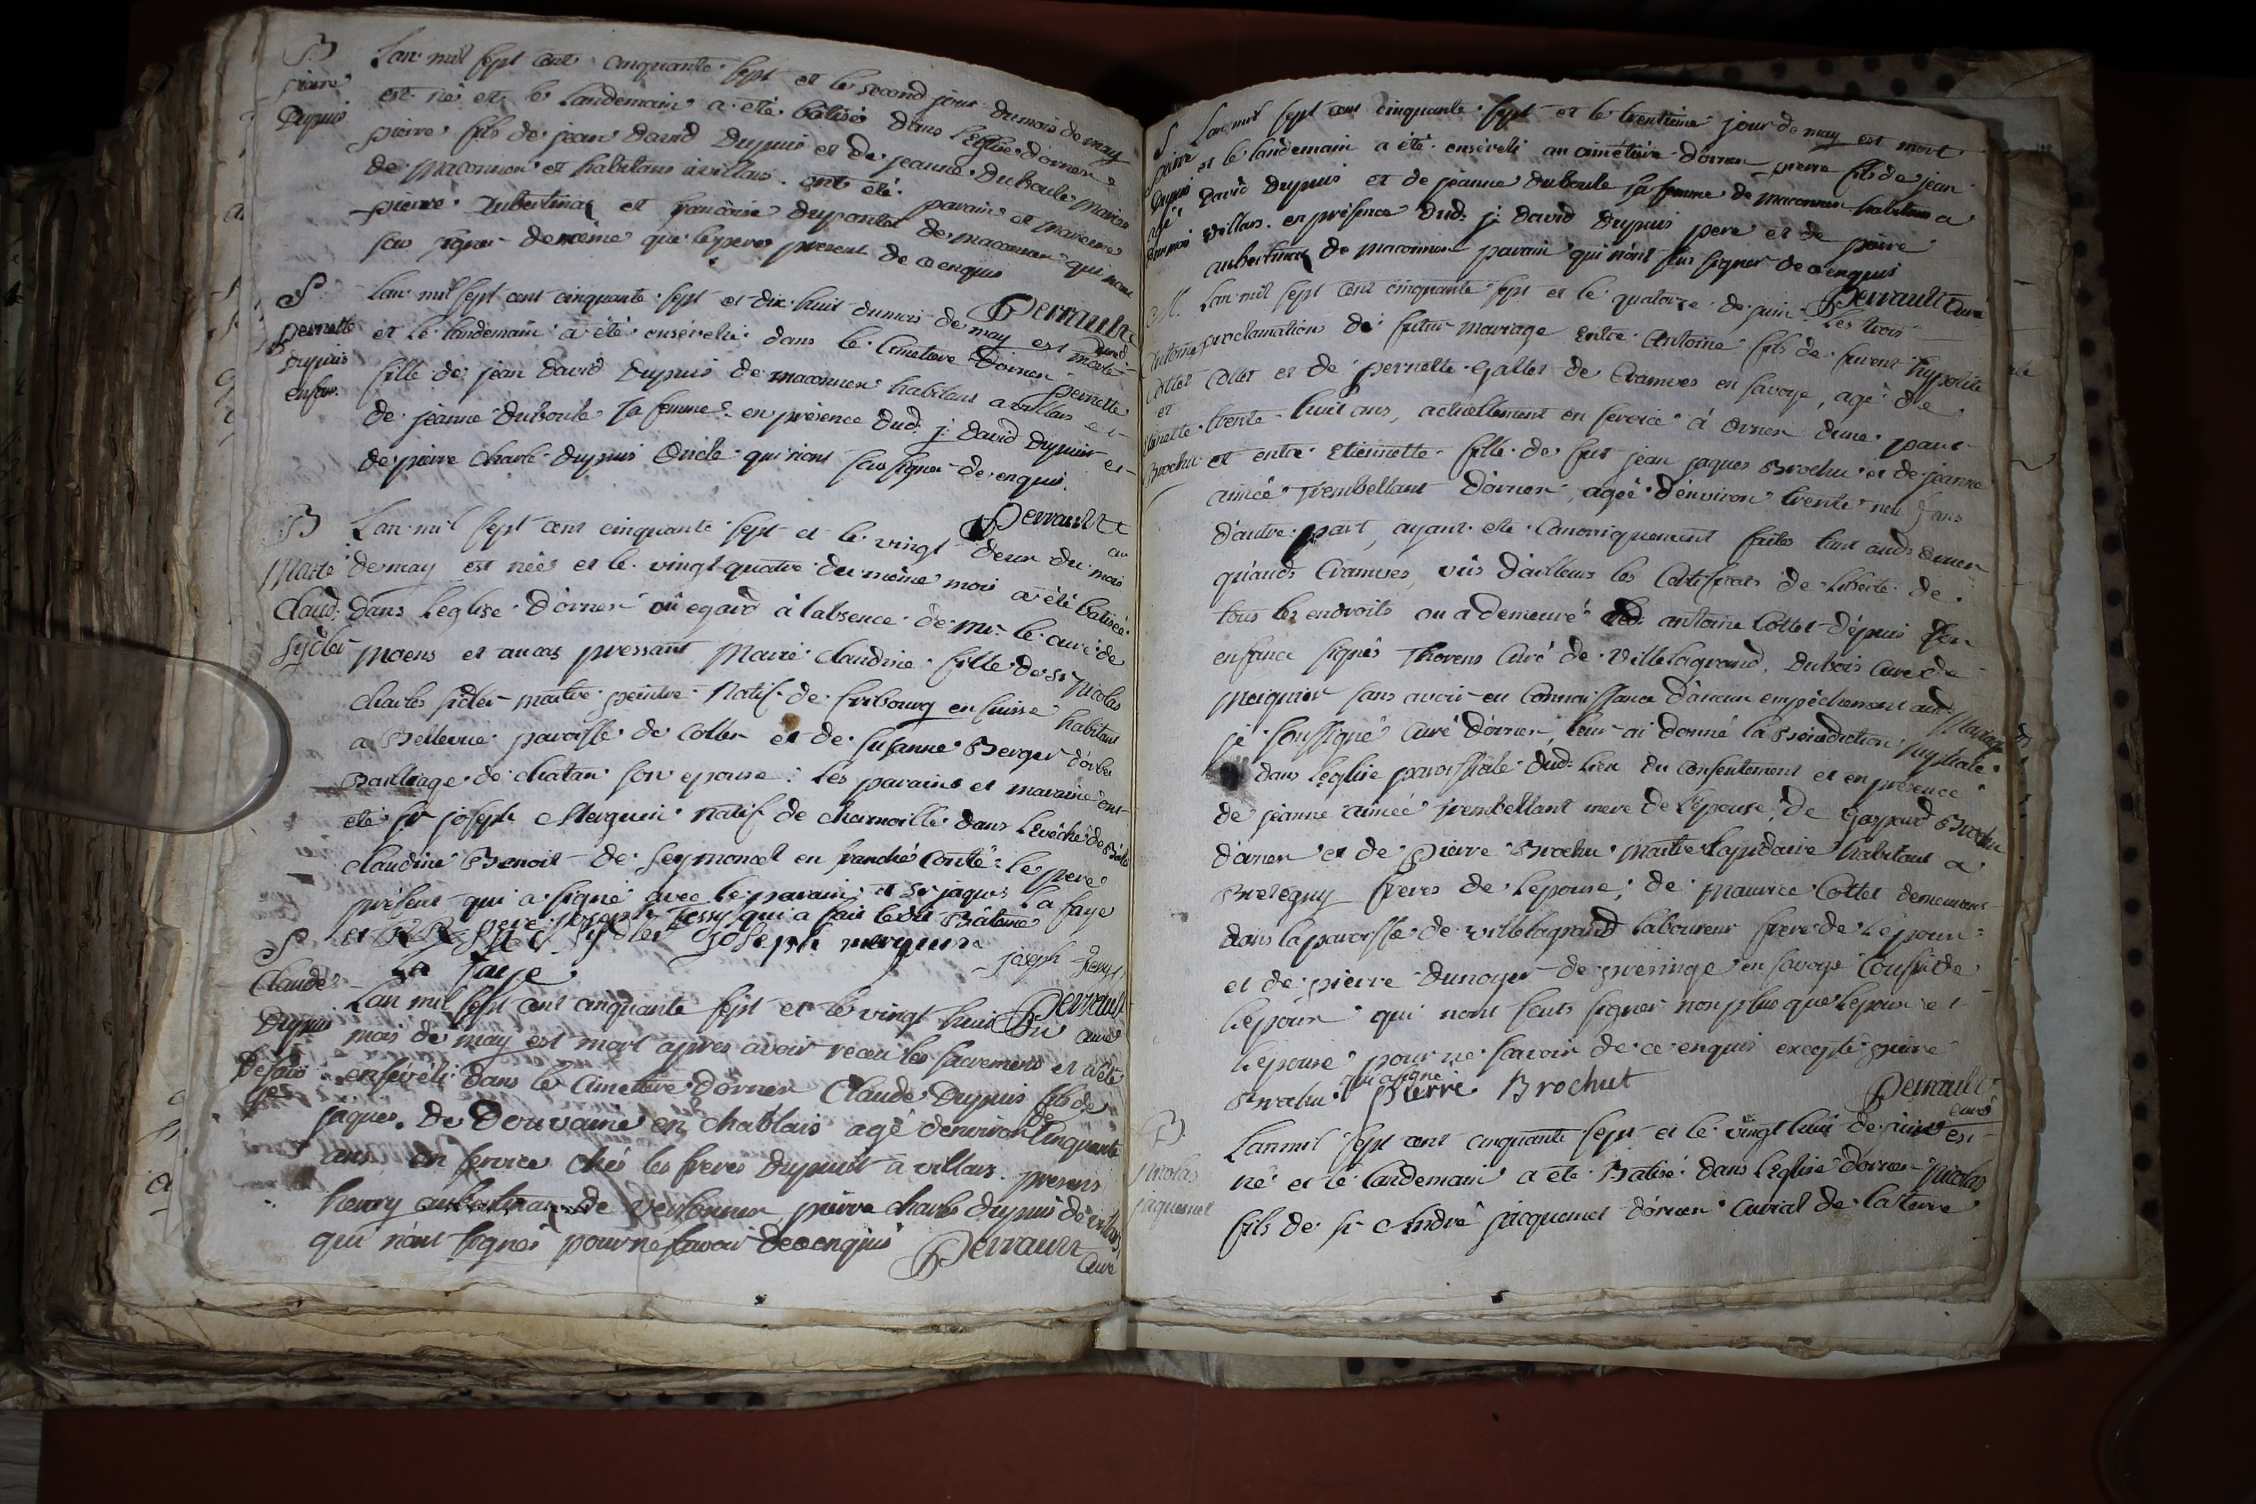 B
pierre
Dupuis
Lan mil sept cent cinquante sept et le second jour du mois de may
est né et le landemain a été batisé dans l'eglise dornex
pierre fils de jean david Dupuis et de jeanne Duboule mariés
de maconnex et habitans a villars. ont été parain et maraine
pierre Aubertinaz et françoise Dupontet de maconnex qui n'ont
sçu signer de même que le pere present de ce enquis
Perrault
curé
S
Pernette
Dupuis
enfan.
Lan mil sept cent cinquante sept et dix huit du mois de may est morte
et le landemain a été ensevelie dans le Cimetiere Dornex Pernette
fille de jean David Dupuis de maconnex habitans a villars et
de jeanne Duboule sa femme en présence dud. j. David Dupuis et
de pierre charle Dupuis Oncle qui n'ont sçu signer de enquis.
Perrault
cu
B
Marie
Claud.
Sydler
Lan mil sept cent cinquante sept et le vingt deux du mois
de may est née et le vingt quatre du même mois a été batisée
dans l'eglise dornex oû egard à l'absence de mr. le curé de
moens et au cas pressant Marie Claudine fille de Sr Nicolas
Charles sidler maitre peintre natif de fribourg en suisse habitant
a Bellevue paroisse de Collex et de Susanne Berger d'orbe
Bailliage de son epouse: Les parains et maraine ont
été sr joseph Merguin natif de charmoille dans l'evêché de Bale
claudine Benoit de Seymoncel en franche Conté: le pere
présent qui a signé avec le parain et Sr jaques La faye
et R. pere joseph Jessy qui a fait ledit Bâteme
Sydler joseph merguin
La faye
joseph Jessy
Perrault
curé
S
Claude
Dupuis
Lan mil sept cent cinquante sept et le vingt huit Du
mois de may est mort apres avoir receu les sacremens et a été
enseveli dans le Cimetiere Dornex Claude Dupuis fils de
jaques de Douvaine en chablais agé denviron Cinquante
ans en service chés les freres Dupuis à villars. presens
henry de Versonnex pierre charle Dupuis de villars
qui n'ont signés pour ne savoir de ce enquis
Perrault
Curé
S
pierre
Dupuis
agé
d'un moi
Lan mil sept cent cinquante sept et le trentième jour de may est mort
et le landemain a été enséveli au cimetiere dornex pierre fils de jean
David Dupuis et de jeanne Duboule sa femme de maconnex habitans a
villars. en présence dud. j. david Dupuis pere et de pierre
aubertinaz de maconnex parain qui n'ont sçu signer de ce enquis
Perrault Curé
M.
Antoine
Collet
et
Etiennette
Brochu
Lan mil sept cent cinquante sept et le quatorze de juin. Les trois
proclamations de futur mariage entre Antoine fils de feu hypolite
Collet et de pernette Gallet de Cranves en savoye, agé de
trente huit ans, actuellement en service à ornex dune part
et entre Etiennette fille de feu jean jaques Brochu et de jeanne
aimée Prembellant dornex, agée d'environ trente neuf ans
d'autre part, ayant eté Canoniquement faites tant aud. ornex
qu'aud. Cranves, vûs d'ailleurs les Certificats de Liberté de
tous les endroits ou a demeuré led. antoine Collet dépuis son
enfance signés Thorens Curé de villelagrand, Dubois curé de
Meignier sans avoir eu connoissance d'aucun empêchement aud. Mariage
je soussigné Curé Dornex, leur ai donné la Bénédiction nuptiale
dans leglise paroissiale dud. Lieu du consentement et en présence
de jeanne aimée prembellant mere de L'epouse, de Gaspard Brochu
dornex et de Pierre Brochu maitre lapidaire habitant a
Bretegny freres de l'epouse; de Maurice Collet demeurant
dans la paroisse de villelagrand laboureur frere de L'epoux
et de pierre dunoyer de presinge en savoye Cousin de
L'epoux qui n'ont sçuts signer non plus que l'epoux et
L'epouse pour ne savoir de ce enquis excepté pierre
Brochu qui a signé pierre Brochut
Perrault
curé
B.
Nicolas
jaquemet
Lan mil sept cent cinquante sept et le vingt huit de juin est
né et le landemain a été Batisé dans L'eglise dornex Nicolas
fils de sr André jacquemet dornex Curial de la terre